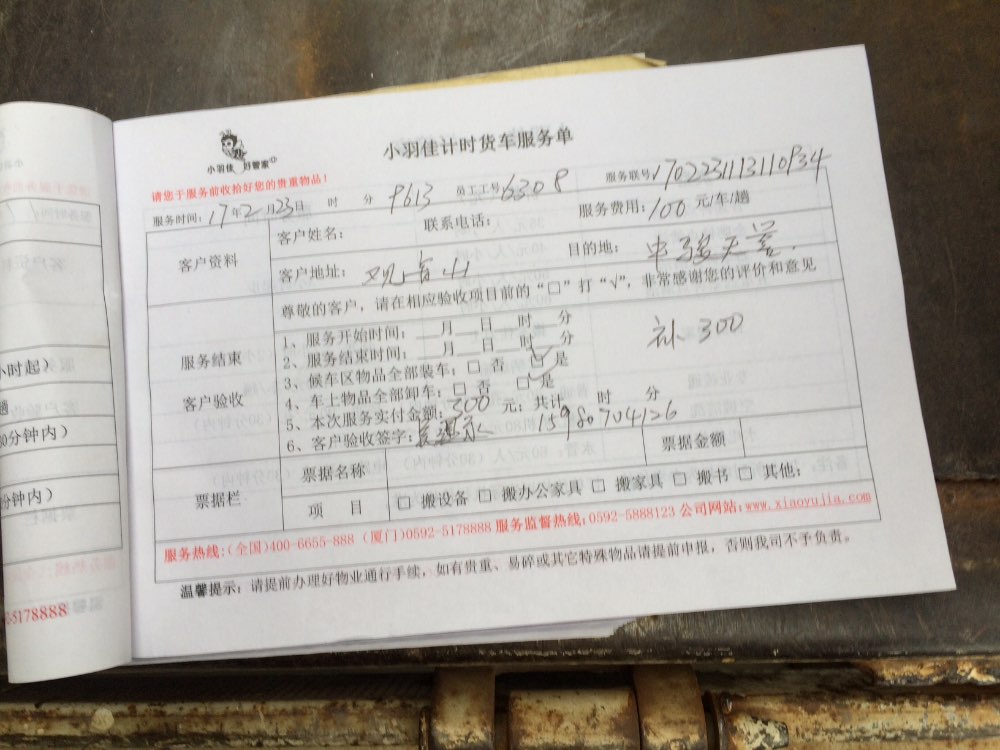 小羽佳 好管家
小羽佳计时货车服务单
请您于服务前收拾好您的贵重物品！
服务时间：17年2月23日 时 分 9613 员工工号：6308 服务联号：170223113110934
客户资料
客户姓名： 联系电话： 服务费用：100 元/车/趟
客户地址：观音山 目的地：
服务结束
客户验收
尊敬的客户，请在相应验收项目前的“□”打“√”，非常感谢您的评价和意见
1、服务开始时间：__月__日__时__分
2、服务结束时间：__月__日__时__分
补300
3、候车区物品全部装车：□ 否 □ 是
4、车上物品全部卸车：□ 否 □ 是
5、本次服务实付金额：300 元；共计 时 分
6、客户验收签字： 15980704126
票据栏
票据名称 票据金额
项 目 □ 搬设备 □ 搬办公家具 □ 搬家具 □ 搬书 □ 其他：
服务热线：(全国)400-6655-888 (厦门)0592-5178888 服务监督热线：0592-5888123 公司网站：www.xiaoyujia.com
温馨提示：请提前办理好物业通行手续，如有贵重、易碎或其它特殊物品请提前申报，否则我司不予负责。
小时起）
趟
30分钟内）
分钟内）
-5178888）